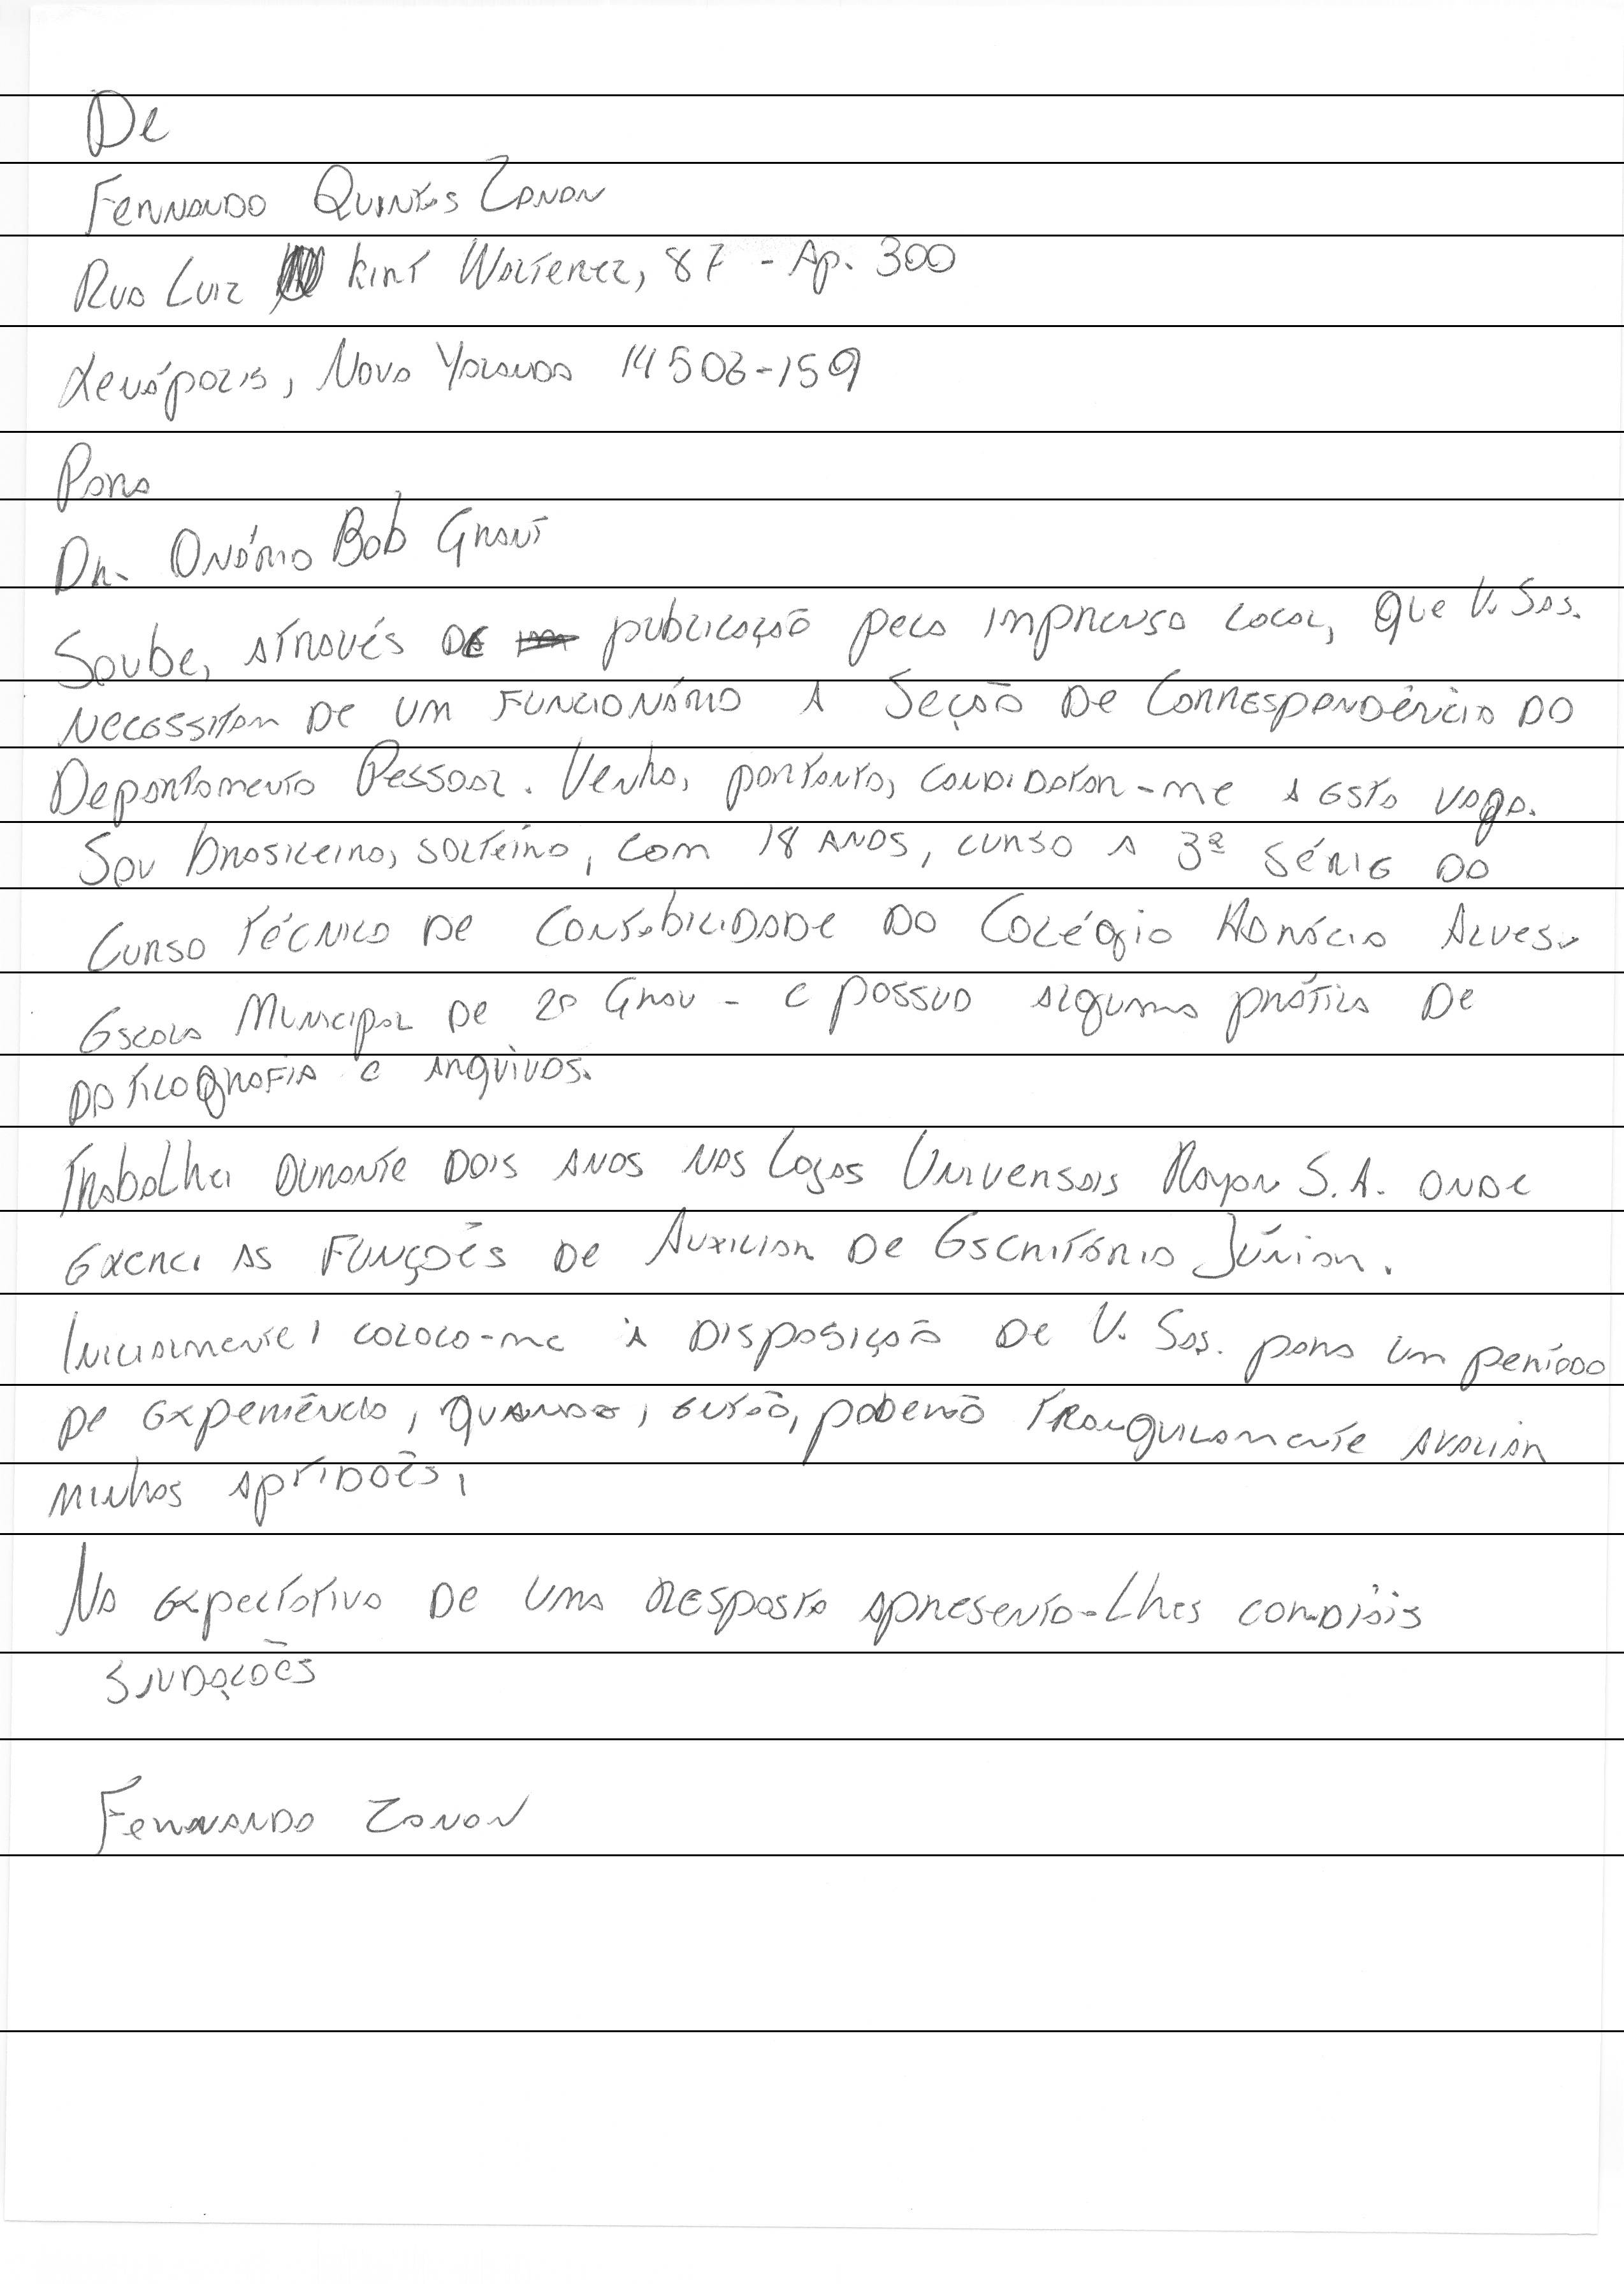 De
Fernando Quintes Zanon
Rua Luiz Kirt Walterez, 87 - Ap. 300
Xenápolis, Nova Yolanda 14502-159
Para
Dr. Onório Bob Grant
Soube, através de publicação pela imprensa local, que V. Sas.
necessitam de um funcionário a Seção de Correspondência do
Departamento Pessoal. Venho, portanto, candidatar-me a esta vaga.
Sou brasileiro, solteiro, com 18 anos, curso a 3ª série do
Curso técnico de Contabilidade do Colégio Horácio Alves.
Escola Municipal de 2º Grau - e possuo alguma prática de
datilografia e arquivos.
Trabalhei durante dois anos nas Lojas Universais Rayon S.A. onde
exerci as funções de Auxiliar de Escritório Júnior.
Inicialmente, coloco-me à disposição de V. Sas. para um período
de experiência, quando, então, poderão tranquilamente avaliar
minhas aptidões.
Na expectativa de uma resposta apresento-lhes cordiais
saudações
Fernando Zanon